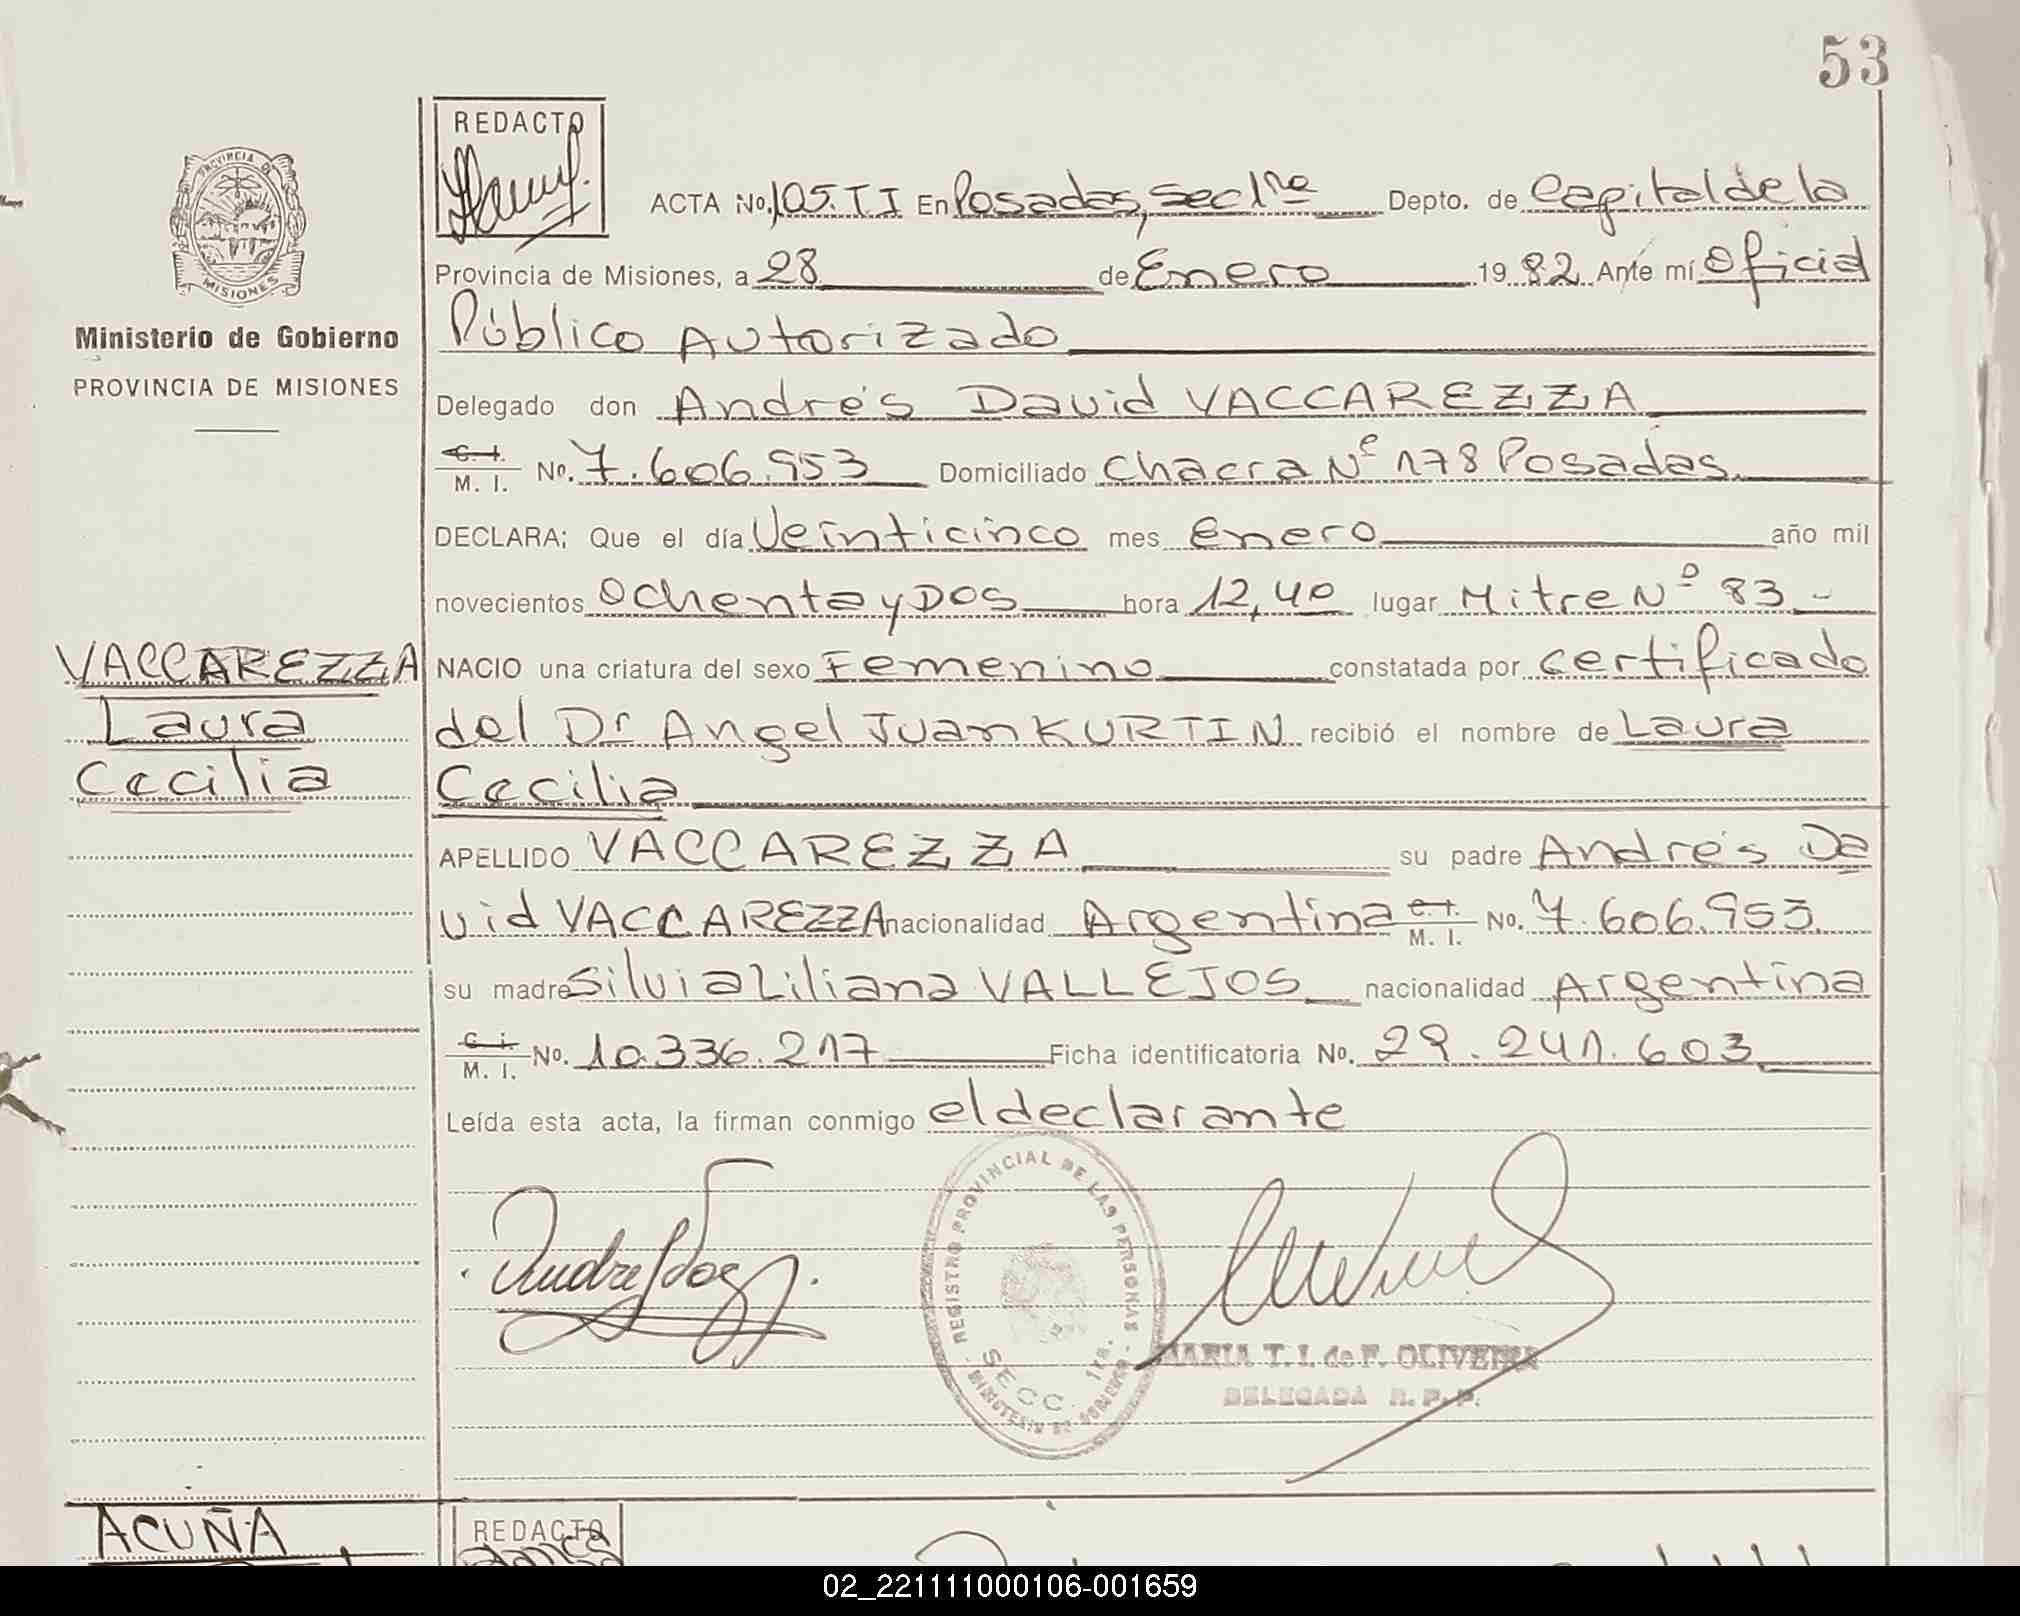 53
REDACTO
PROVINCIA DE
MISIONES
ACTA No. 105. TI En Posadas, Sec 1ra Depto. de Capital de la
Provincia de Misiones, a 28 de Enero 1982 Ante mí Oficial
Ministerio de Gobierno
Público Autorizado
PROVINCIA DE MISIONES
Delegado don Andrés David VACCAREZZA
C. I.
M. I. No. 7.606.953 Domiciliado Chacra Nº 178 Posadas
DECLARA; Que el día Veinticinco mes Enero año mil
novecientos Ochenta y Dos hora 12,40 lugar Mitre Nº 83 -
VACCAREZZA
Laura
Cecilia
NACIO una criatura del sexo Femenino constatada por certificado
del Dr Angel Juan KURTIN recibió el nombre de Laura
Cecilia
APELLIDO VACCAREZZA su padre Andrés Da
vid VACCAREZZA nacionalidad Argentina C. I. M. I. No. 7.606.953.
su madre Silvia Liliana VALLEJOS nacionalidad Argentina
C. I.
M. I. No. 10.336.217 Ficha identificatoria No. 29.241.603
Leída esta acta, la firman conmigo el declarante
REGISTRO PROVINCIAL DE LAS PERSONAS
SECC. 1ra.
MINISTERIO DE GOBIERNO
MARIA T. I. de F. OLIVEIRA
DELEGADA R. P. P.
ACUÑA
REDACTO
02_221111000106-001659